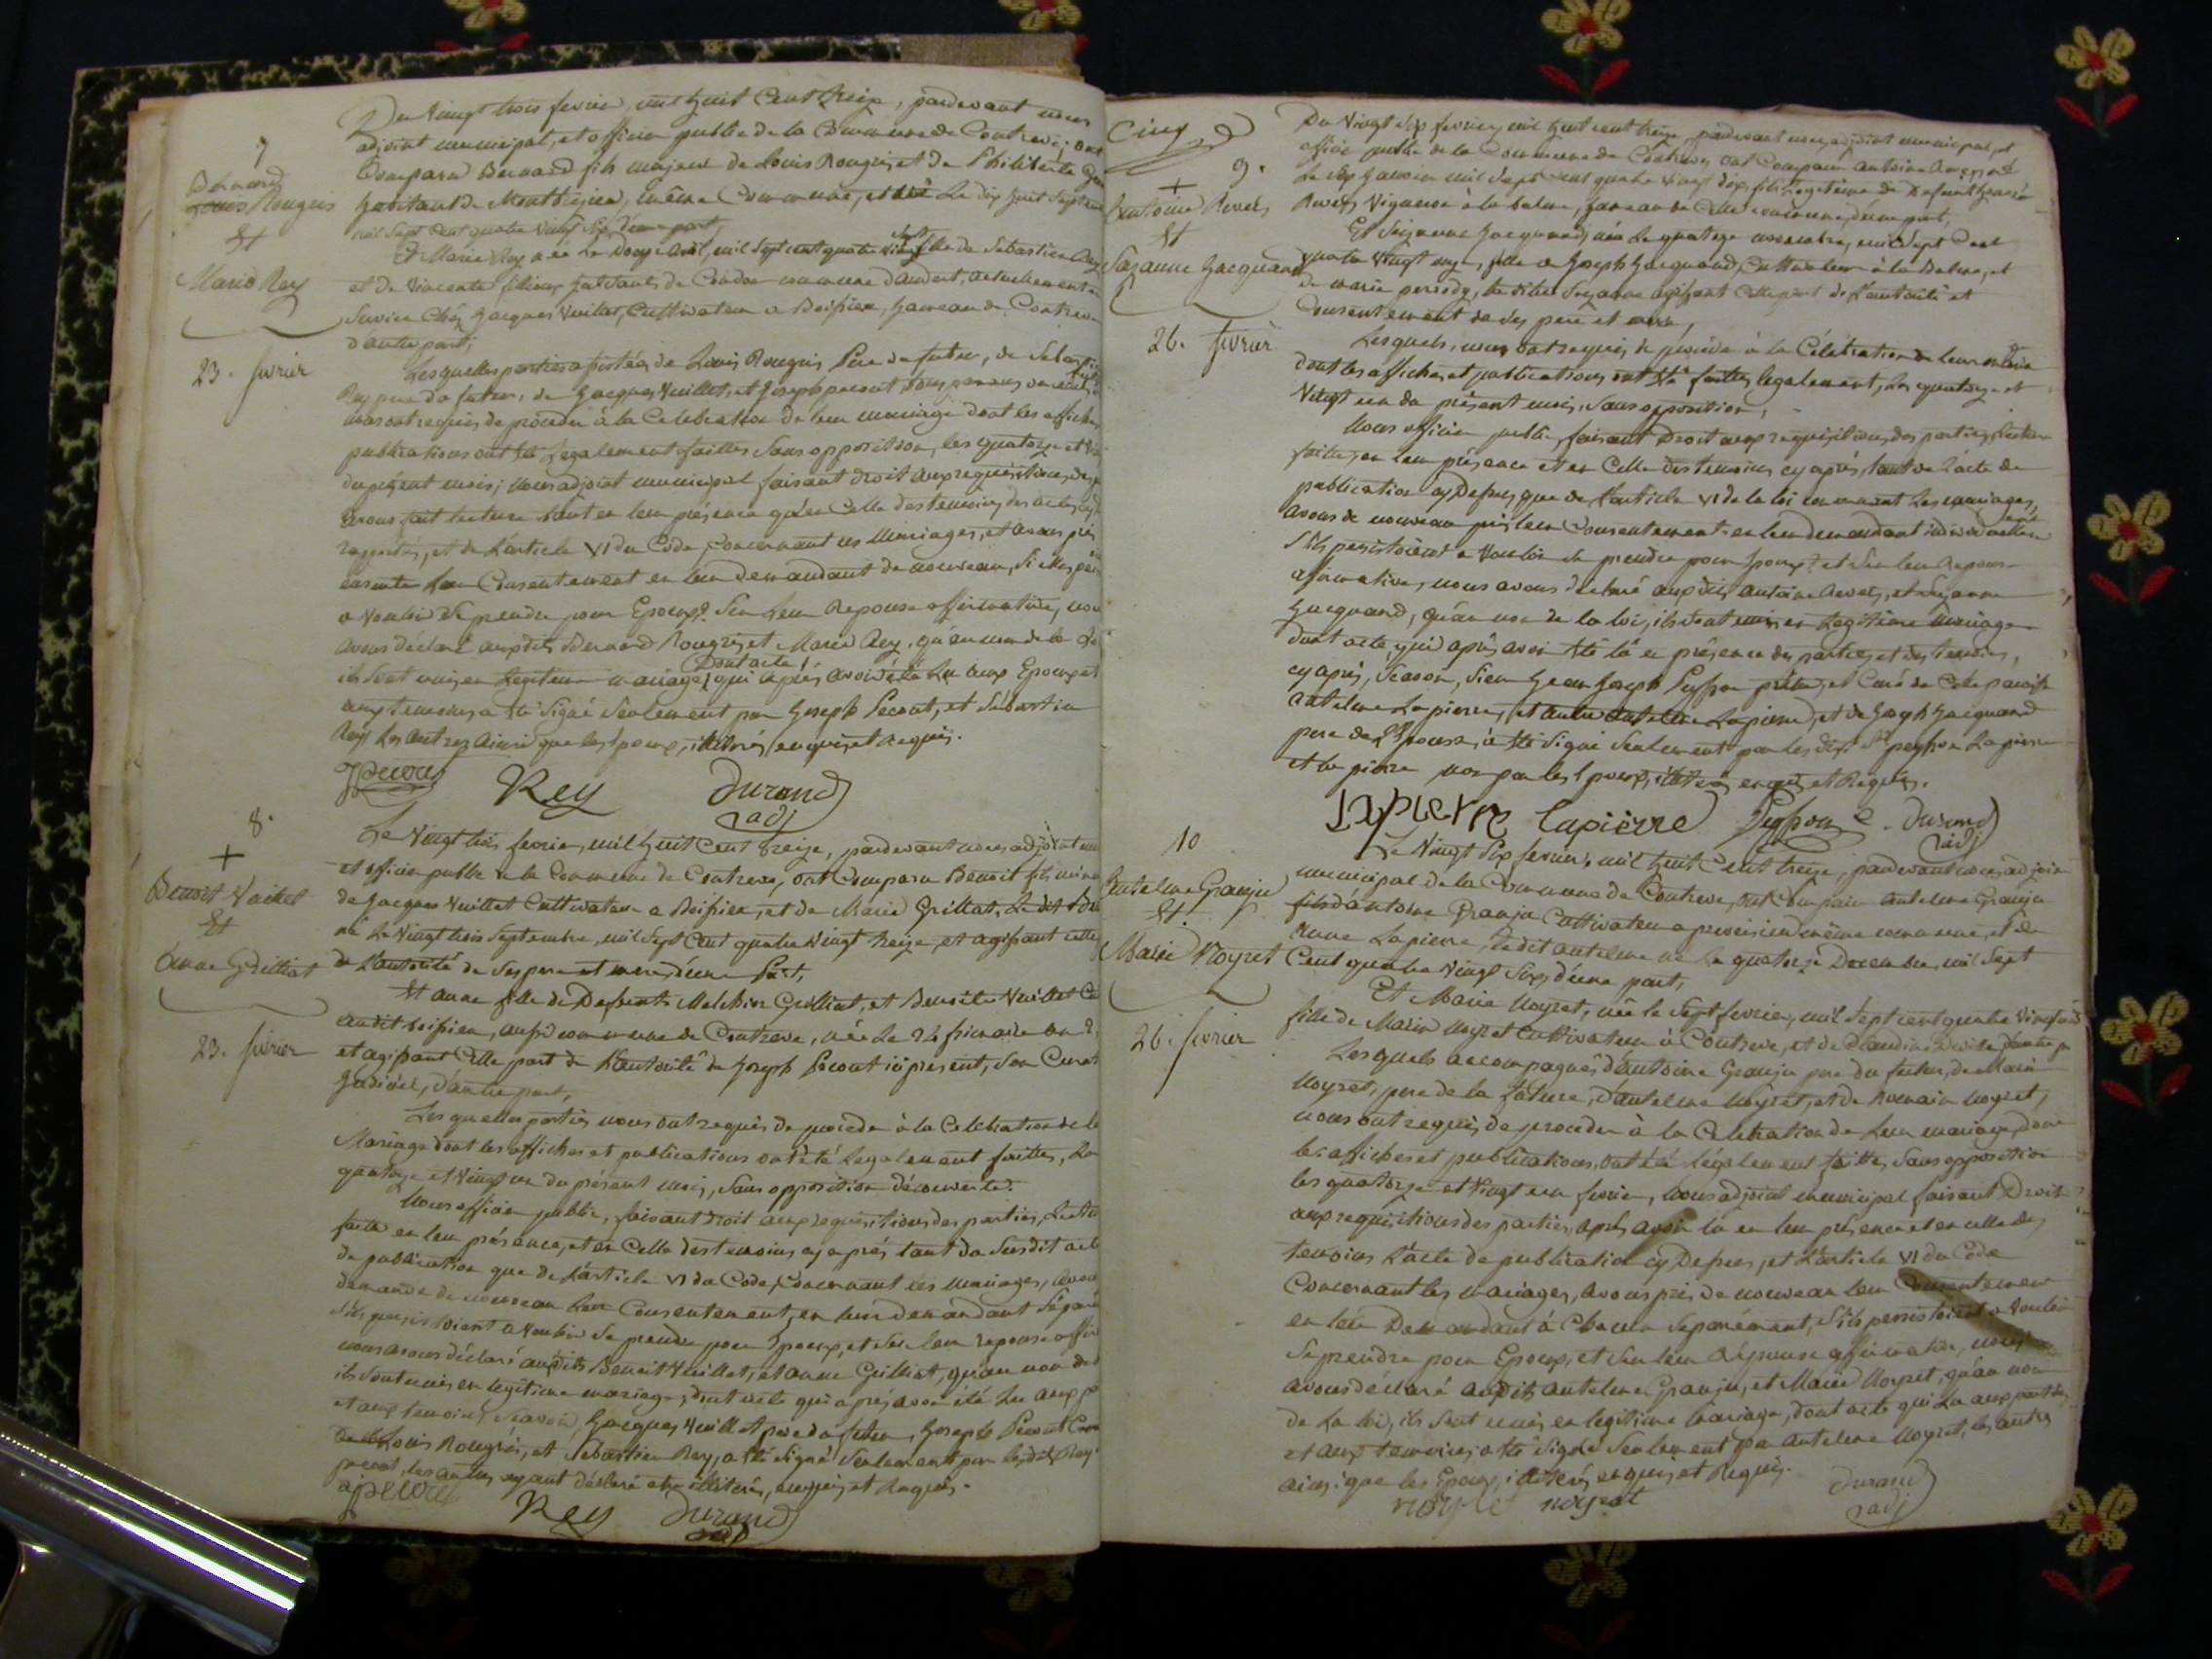 7
Bernard
Louis Rougris
Et
Marie Rey
23. fevrier
Du Vingt trois fevrier, mil huit Cent treize, pardevant nous
adjoint municipal, et officier public de la Commune de Contrevoz, ont
Comparu Bernard fils majeur de Louis Rougris, et de Philiberte
habitant de Montbrezieu, même Commune, et né Le dix huit Septem
mil Sept Cent quatre vingt Six, d'une part,
Et Marie Rey née Le Douze Avril, mil Sept cent quatre vingt Sept fille de Sebastien Rey
et de Vincente habitants de Condon commune d'andert, actuellement en
Service Chéz Jacques Vuillet, Cultivateur a Boissieu, hameau de Contrevoz
d'autre part;
Lesquelles parties assistées de Louis Rougris Père du futur, de Sebastien
Rey pere de la future, de Jacques Vuillet, et Joseph pecout
nous ont requis de proceder à la Celebration de leur mariage dont les affiches
publications ont été Legalement faittes Sans opposition, les quatorze et Vin
du présent mois; nous adjoint municipal faisant droit aux requisitions des
avons fait lecture tant en leur présence qu'en Celle des temoins des actes cy
rapportés, et de L'article VI du Code, Concernant les Mariages, et avons pris
ensuite Leur Consentement en leur demandant de nouveau, Si
a Vouloir Se prendre pour Epoux? Sur Leur Reponse affirmative, nous
avons déclaré auxdits Bernard Rougris, et Marie Rey, qu'au nom de la Loi
ils Sont unis en Legitime mariage, Dont acte, qui après avoir été Lu aux Epoux et
aux temoins, a été Signé Seulement par Joseph Pecout, et Sebastien
Rey Les autres Ainsi que les Epoux, illiterés, enquis, et requis.
Jpecout Rey Durand
adj
8.
+
Benoit Vuillet
Et
Anne Grilliat
23. fevrier
Le Vingt trois fevrier, mil huit Cent treize, pardevant nous adjoint mu
et officier public de la Commune de Contrevoz, ont Comparu Benoit fils mineur
de Jacques Vuillet Cultivateur a Boissieu, et de Marie Grilliat, Le dit Be
né Le Vingt trois Septembre, mil Sept Cent quatre Vingt treize, et agissant cette
de L'autorité de Ses pere et mere, d'une Part,
Et Anne fille de Defunt Melchior Grilliat, et Benoite Vuillet Cu
audit boissieu, aussi commune de Contrevoz, née Le 24 frimaire an 2,
et agissant Cette part de L'autorité de Joseph Pecout ici present, Son Curat
Judiciel, d'autre part,
Lesquelles parties nous ont requis de proceder à la Celebration de le
Mariage dont les affiches et publications ont été Legalement faittes, Le
quatorze et Vingt un du présent mois, Sans opposition découverte.
Nous officier public, faisant droit aux requisitions des parties, Lecture
faite en leur présence, et en Celle des temoins cy après tant du Susdit acte
de publication que de L'article VI du Code, Concernant les mariages, avons
demandé de nouveau Leur Consentement, en leur demandant Séparé
S'ils persistoient a Vouloir Se prendre pour Epoux, et Sur leur reponse affir
nous avons déclaré auxdits Benoit Vuillet, et anne Grilliat, qu'au nom de
ils Sont unis en legitime mariage; dont acte qui après avoir été Lu aux p
et aux temoins, Scavoir, Jacques Vuillet pere du futur, Joseph Pecout Cur
Louis Rougris, et Sebastien Rey, a été Signé Seulement par lesdits Rey
pecout, les autres ayant déclaré etre illiterés, enquis, et Requis.
Jpecout Rey Durand
adj
Cinq
9.
+
Antoine Revet,
Et
Suzanne Jacquand
26. fevrier
Du Vingt Six fevrier, mil huit cent treize, pardevant nous adjoint municipal, et
officier public de la Commune de Contrevoz ont Comparu antoine
Le Six Janvier mil Sept cent quatre vingt dix, fils Legitime de Defunt
Revet, Vigneron à la balme, hameau de Cette commune, d'une part,
Et Suzanne Jacquand, née Le quatorze novembre, mil Sept Cent
quatre Vingt onze, fille de Joseph Jacquand, Cultivateur à la Balme, et
de marie la ditte Suzanne agissant Cette part de L'autorité et
Consentement de Ses pere et mere,
Lesquels, nous ont requis de proceder à la Célébration de leur mariage
dont les affiches et publications ont été faittes legalement, Les quatorze et
Vingt un du présent mois, Sans opposition,
Nous officier public, faisant Droit aux requisitions des parties, Lecture
faitte, en leur présence et en Celle des temoins cy après, tant de L'acte de
publication cy Dessus, que de L'article VI de la loi concernant Les mariages,
avons de nouveau pris leur Consentement en leur demandant
S'ils persistoient a Vouloir Se prendre pour Epoux? et Sur leur Reponse
affirmative, nous avons declaré auxdits antoine Revet, et Suzanne
Jacquand, qu'au nom de la loi, ils sont unis en Legitime Mariage
dont acte, qui après avoir été lû en présence des parties, et des temoins,
cy après, Scavoir, Sieur Jean Joseph Peysson prêtre, et Curé de Cette paroisse
Antelme Lapierre, et autre Antelme Lapierre, et de Joseph Jacquand
pere de L'Epouse, a été Signé Seulement par lesdits Sr peysson Lapierre
et la pierre non par les Epoux, illiterés enquis et Requis.
lapierre lapierre Peysson C. Durand
adj
10
Antelme Granju
Et.
Marie Noyret
26. fevrier
Le Vingt Six fevrier, mil huit Cent treize, pardevant nous adjoint
municipal de la Commune de Contrevoz, ont Comparu Antelme Granju
fils d'antoine Granju Cultivateur a même commune, et de
Anne Lapierre, Le dit antelme né Le quatorze Decembre, mil Sept
Cent quatre Vingt Six, d'une part,
Et Marie Noyret, née le Sept fevrier, mil Sept cent quatre Vingt
fille de Marin Noyret Cultivateur à Contrevoz, et de Claudine d'autre p
Lesquels accompagnés d'antoine Granju pere du futur, de Marin
Noyret, pere de la future, d'antelme Noyret, et de Romain Noyret,
nous ont requis de proceder à la Célébration de Leur mariage, dont
les affiches et publications, ont été légalement faittes, Sans opposition
les quatorze et Vingt un fevrier, nous adjoint municipal faisant Droit
aux requisitions des parties, après avoir lu en leur présence et en celle des
temoins L'acte de publication cy Dessus, et L'article VI du Code
Concernant les Mariages, avons pris de nouveau leur Consentement
en leur Demandant à Chacun Separément, S'ils persistoient a Vouloir
Se prendre pour Epoux, et Sur leur Réponse affirmative, nous
avons déclaré auxdits, Antelme Granju, et Marie Noyret, qu'au nom
de La loi, ils Sont unis en legitime Mariage, dont acte qui Lu aux parties,
et aux temoins, a été Signé Seulement par Antelme Noyret, les autres
ainsi que les Epoux, illiterés, enquis, et Requis.
noyret noyret Durand
adj